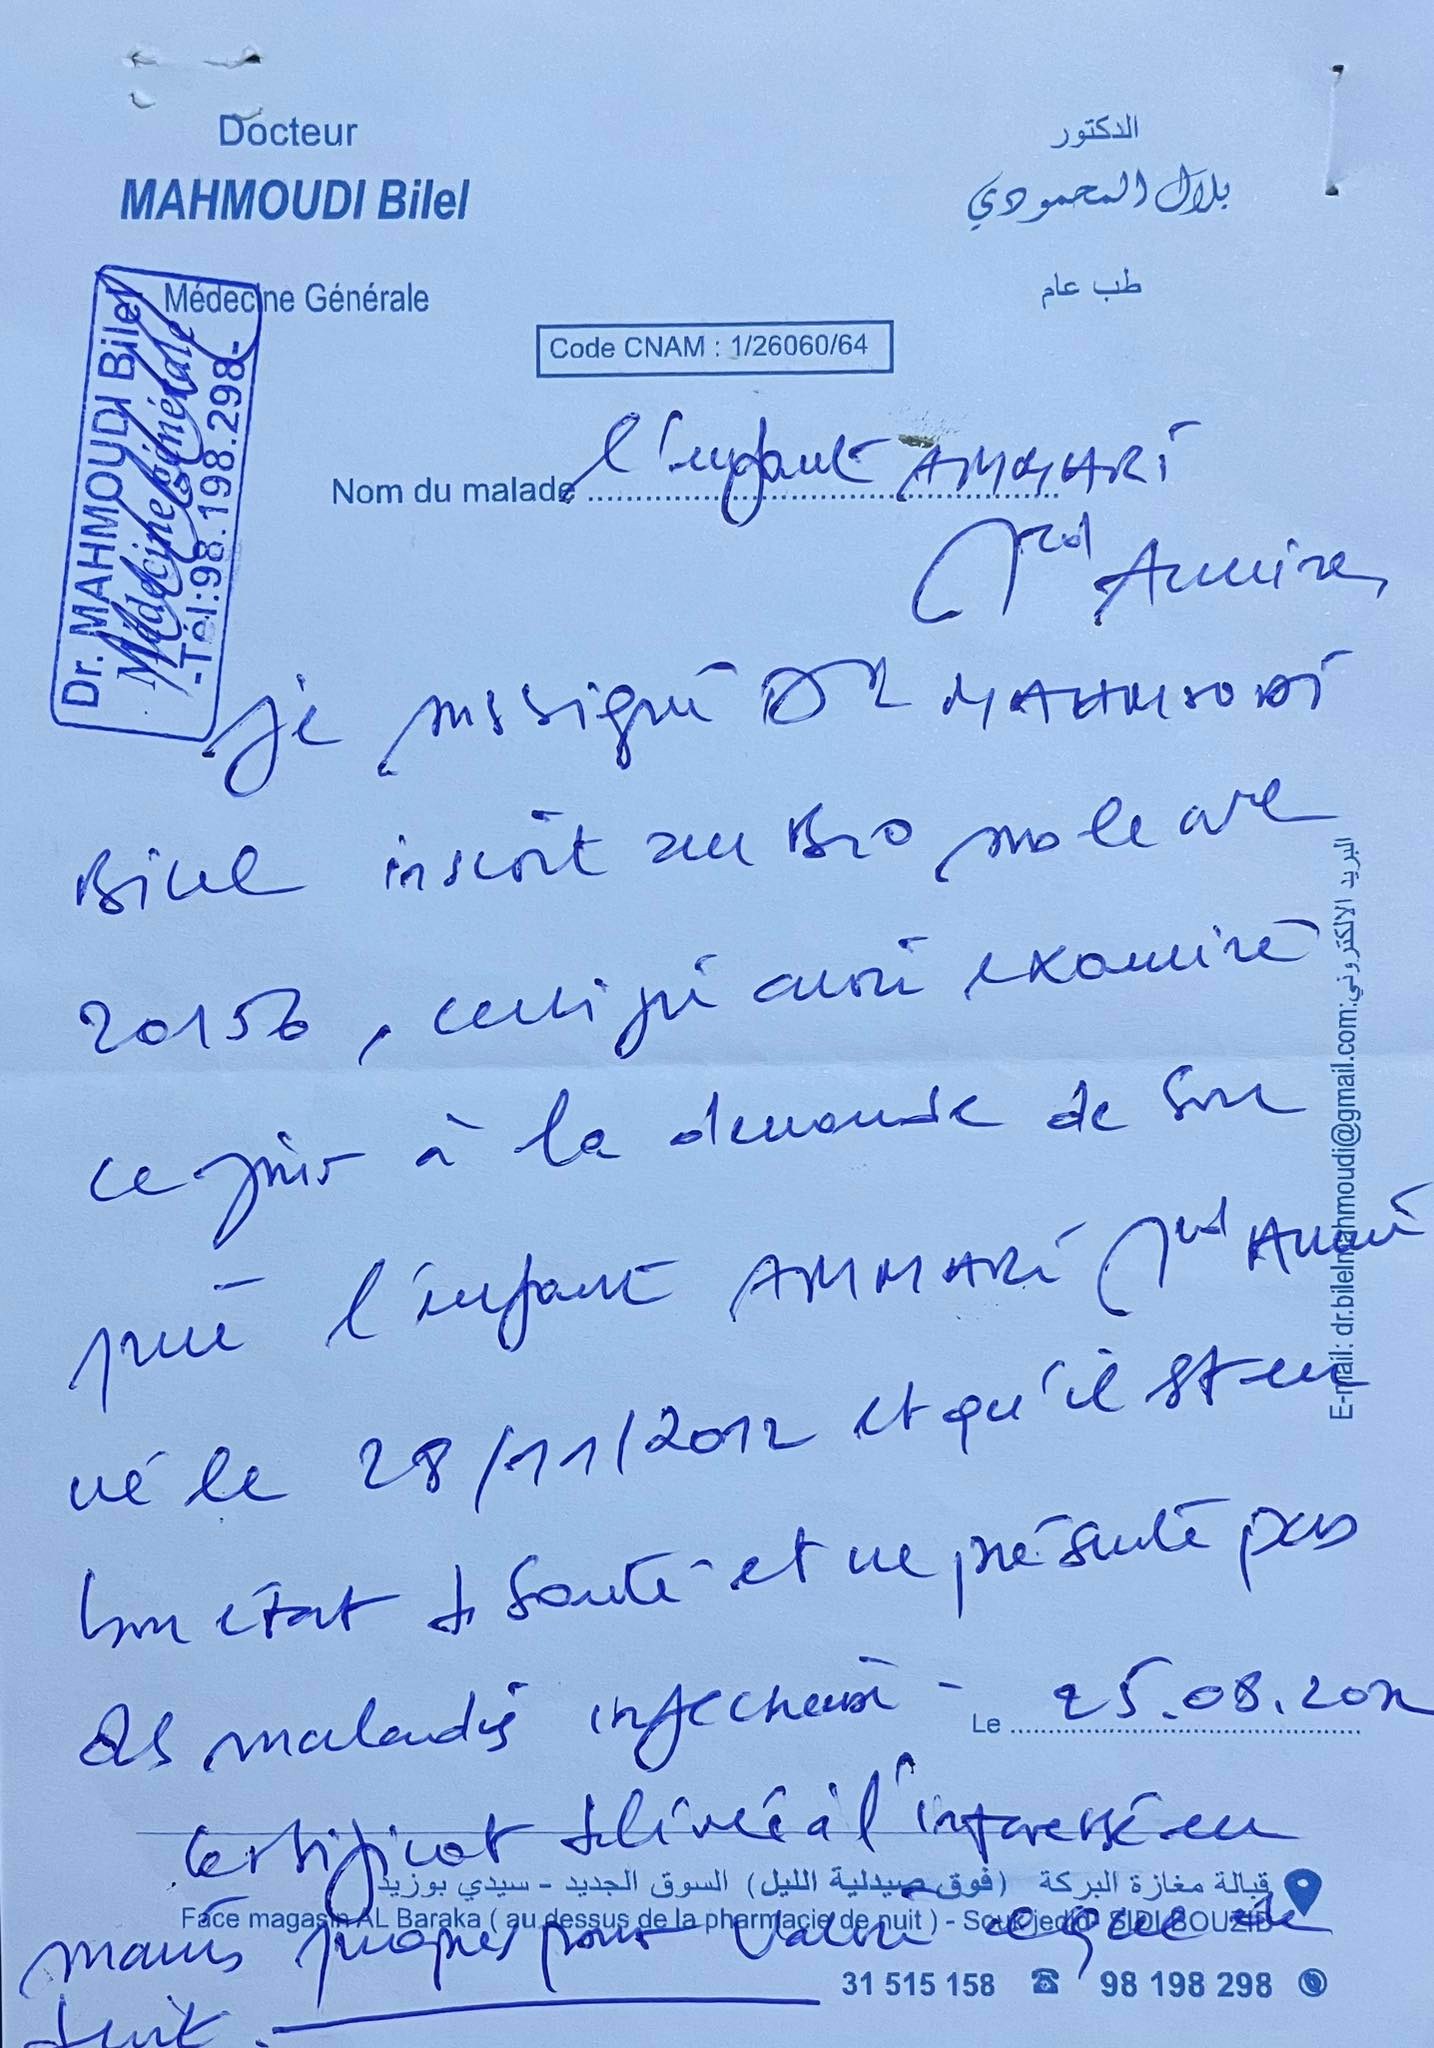 Docteur
MAHMOUDI Bilel
Médecine Générale
الدكتور
بلال المحمودي
طب عام
Code CNAM : 1/26060/64
Dr. MAHMOUDI Bilel
Médecine Générale
-Tél:98.198.298-
Nom du malade l'enfant AMMARI
je soussigné Dr MAHMOUDI
Bilel inscrit au
20156, certifie avoir examiné
ce jour à la demande de son
père l'enfant AMMARI
né le 28/11/2012 et qu'il est en
bon état de santé et ne présente pas
des maladies infectieuses -
Le 25.08.202
certificat délivré à l'intéressé en
mains propres pour valoir ce que de
droit.
قبالة مغازة البركة (فوق صيدلية الليل) السوق الجديد - سيدي بوزيد
Face magasin AL Baraka ( au dessus de la pharmacie de nuit ) - Souk jedid - SIDI BOUZID
31 515 158 98 198 298
E-mail: dr.bilelmahmoudi@gmail.com:البريد الالكتروني